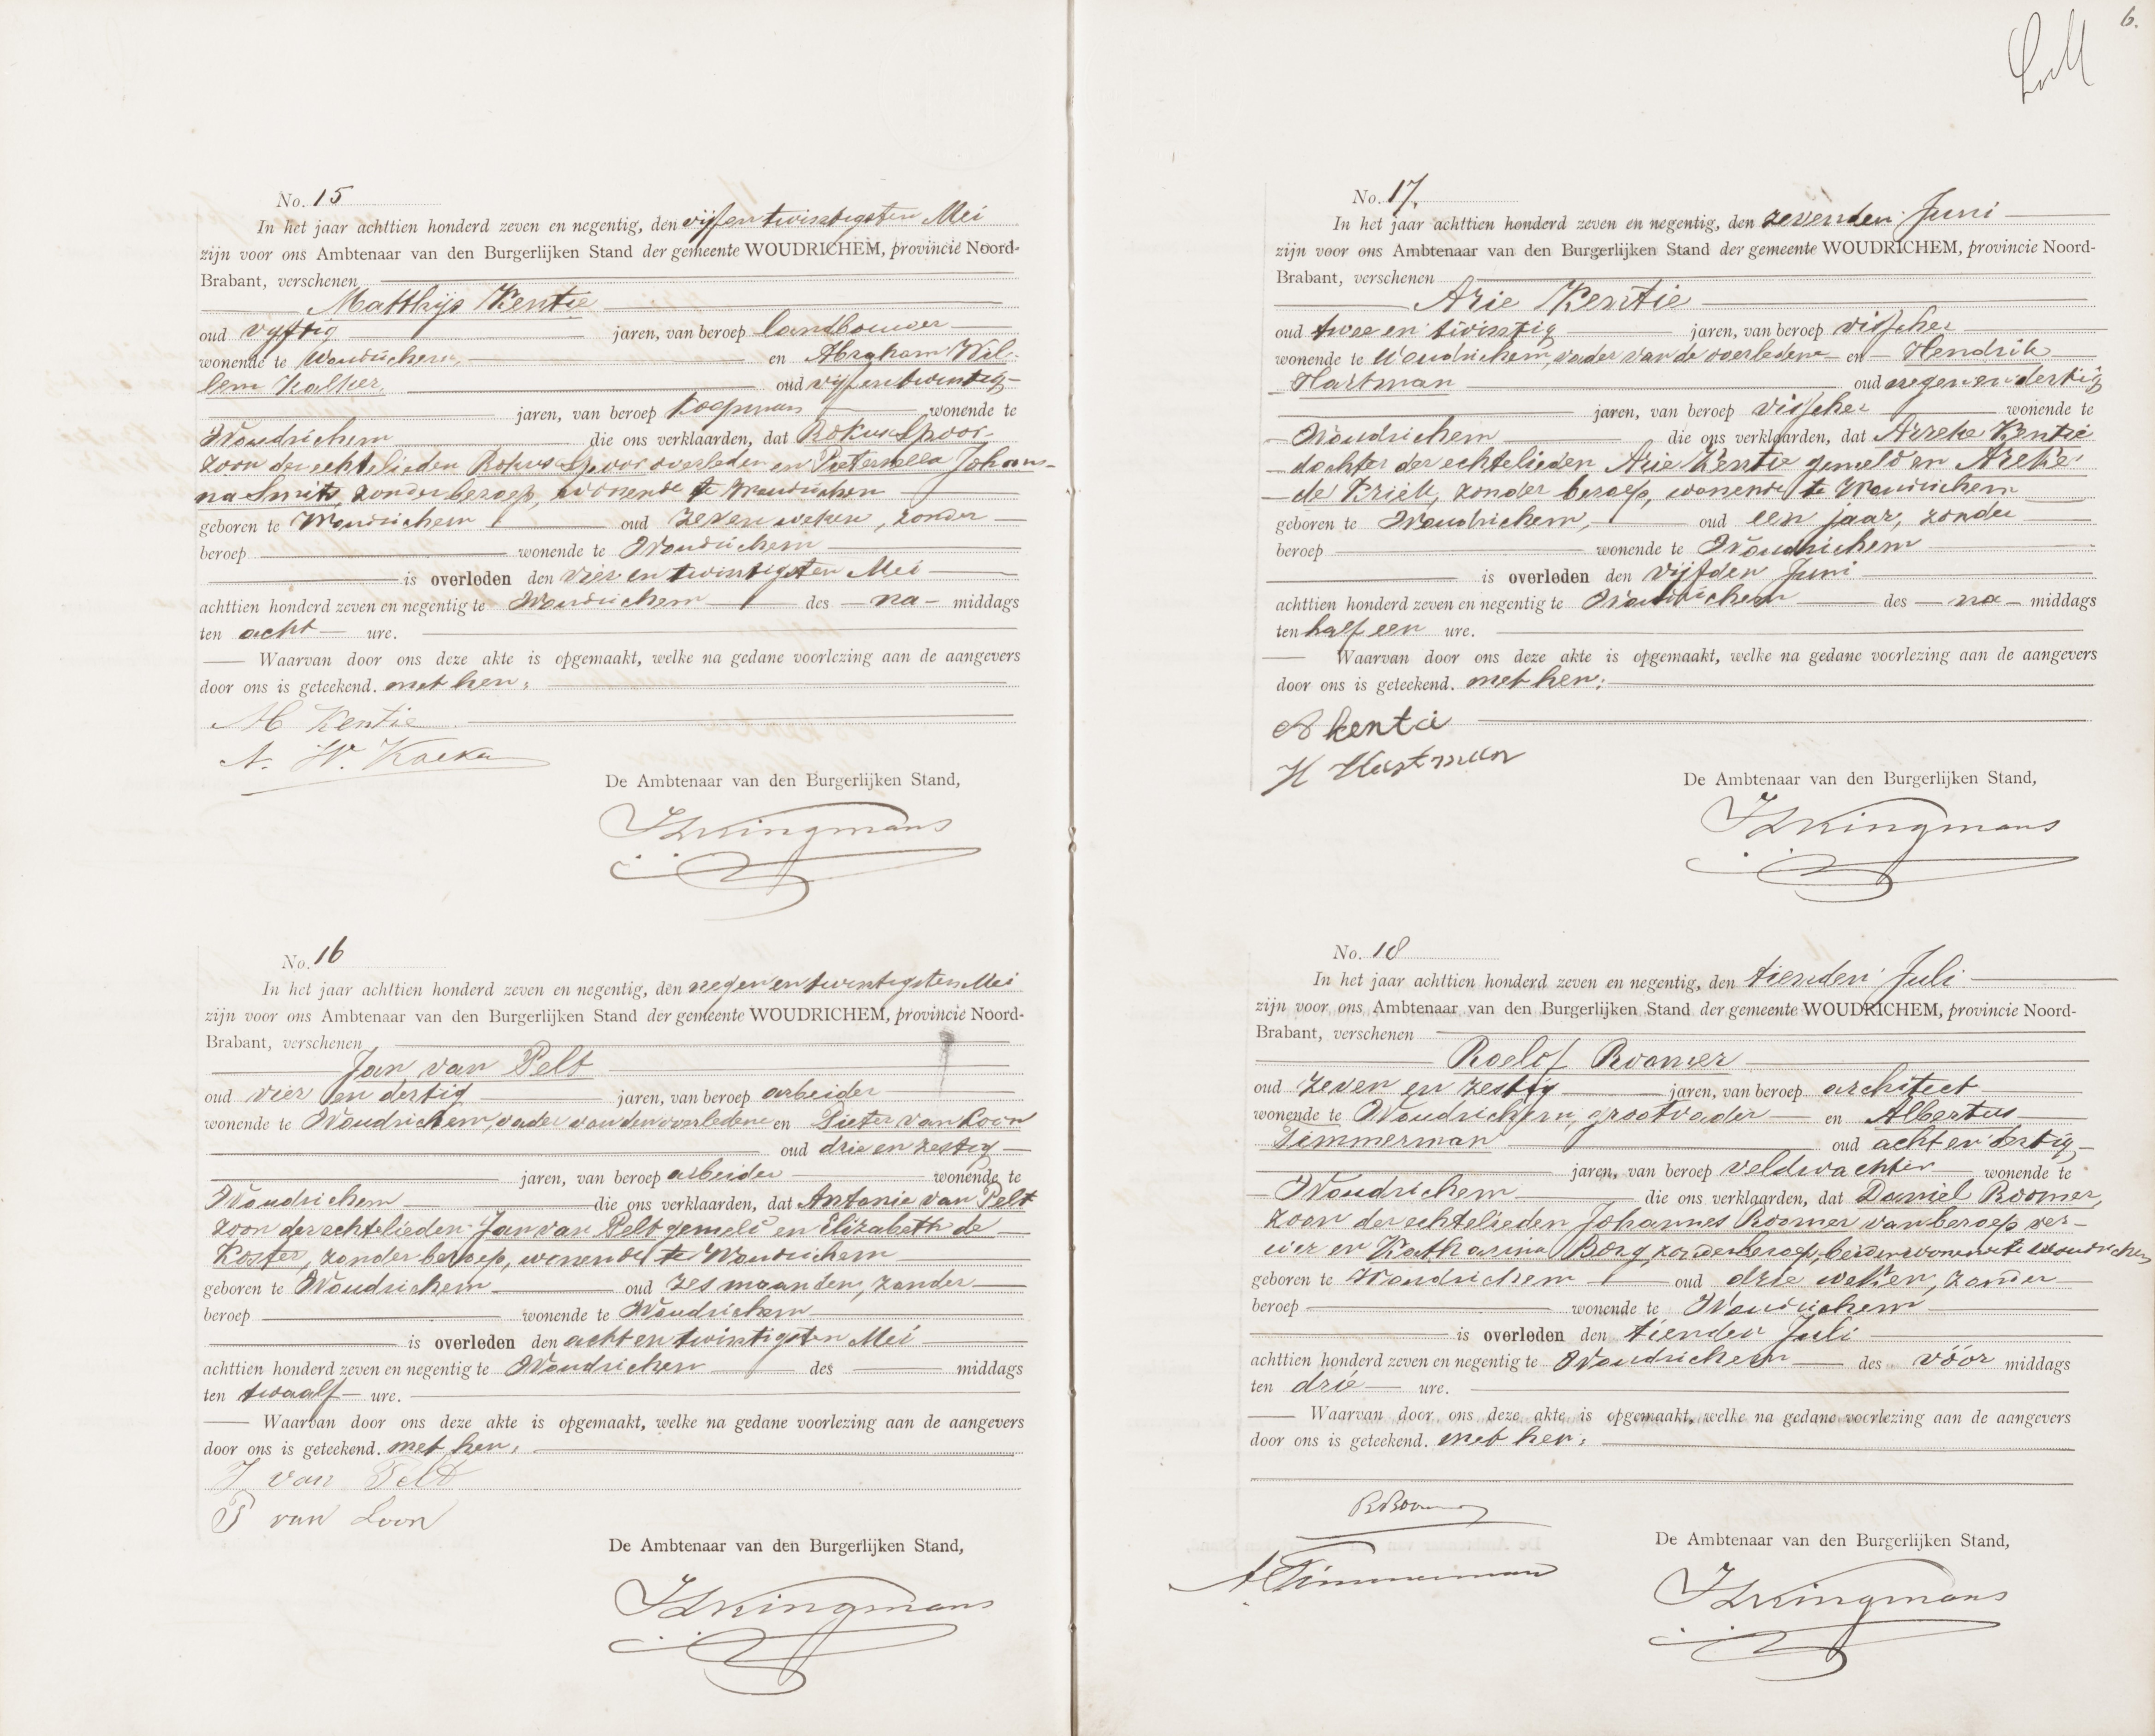 No. 15
In het jaar achttien honderd zeven en negentig, den vijf en twintigsten Mei
zijn voor ons Ambtenaar van den Burgerlijken Stand der gemeente WOUDRICHEM, provincie Noord-
Brabant, verschenen
Matthijs Kentie
oud vijftig jaren, van beroep landbouwer
wonende te Woudrichem, en Abraham Wil-
lem Kalker, oud vijf en twintig
jaren, van beroep koopman wonende te
Woudrichem die ons verklaarden, dat Rokus Spoor
zoon der echtelieden Rokus Spoor overleden en Pieternella Johan-
na Smits, zonder beroep, wonende te Woudrichem
geboren te Woudrichem oud zeven weken, zonder
beroep wonende te Woudrichem
is overleden den vier en twintigsten Mei
achttien honderd zeven en negentig te Woudrichem des na middags
ten acht ure.
Waarvan door ons deze akte is opgemaakt, welke na gedane voorlezing aan de aangevers
door ons is geteekend. met hen.
M Kentie
A. W. Kalker
De Ambtenaar van den Burgerlijken Stand,
Kingmans
No. 16
In het jaar achttien honderd zeven en negentig, den negen en twintigsten Mei
zijn voor ons Ambtenaar van den Burgerlijken Stand der gemeente WOUDRICHEM, provincie Noord-
Brabant, verschenen
Jan van Pelt
oud vier en dertig jaren, van beroep arbeider
wonende te Woudrichem, vader van den overledene en Pieter van Loon
oud drie en zestig
jaren, van beroep arbeider wonende te
Woudrichem die ons verklaarden, dat Antonie van Pelt
zoon der echtelieden Jan van Pelt gemeld en Elizabeth de
Koster, zonder beroep, wonende te Woudrichem
geboren te Woudrichem oud zes maanden, zonder
beroep wonende te Woudrichem
is overleden den acht en twintigsten Mei
achttien honderd zeven en negentig te Woudrichem des middags
ten twaalf ure.
Waarvan door ons deze akte is opgemaakt, welke na gedane voorlezing aan de aangevers
door ons is geteekend. met hen.
J van Pelt
P van Loon
De Ambtenaar van den Burgerlijken Stand,
Kingmans
6.
No. 17.
In het jaar achttien honderd zeven en negentig, den zevenden Juni
zijn voor ons Ambtenaar van den Burgerlijken Stand der gemeente WOUDRICHEM, provincie Noord-
Brabant, verschenen
Arie Kentie
oud twee en twintig jaren, van beroep visscher
wonende te Woudrichem, vader van de overledene en Hendrik
Hartman oud negen en dertig
jaren, van beroep visscher wonende te
Woudrichem die ons verklaarden, dat Kentie
dochter der echtelieden Arie Kentie gemeld en
de Kriek, zonder beroep, wonende te Woudrichem
geboren te Woudrichem, oud een jaar, zonder
beroep wonende te Woudrichem
is overleden den vijfden Juni
achttien honderd zeven en negentig te Woudrichem des na middags
ten half een ure.
Waarvan door ons deze akte is opgemaakt, welke na gedane voorlezing aan de aangevers
door ons is geteekend. met hen.
A kentie
H Hartman
De Ambtenaar van den Burgerlijken Stand,
Kingmans
No. 18
In het jaar achttien honderd zeven en negentig, den tienden Juli
zijn voor ons Ambtenaar van den Burgerlijken Stand der gemeente WOUDRICHEM, provincie Noord-
Brabant, verschenen
Roelof Roomer
oud zeven en zestig jaren, van beroep architect
wonende te Woudrichem, grootvader en Albertus
Timmerman oud acht en dertig
jaren, van beroep veldwachter wonende te
Woudrichem die ons verklaarden, dat Daniel Roomer,
zoon der echtelieden Johannes Roomer van beroep ver-
wer en Katharina Borg, zonder beroep, beiden wonende te Woudrichem
geboren te Woudrichem oud drie weken, zonder
beroep wonende te Woudrichem
is overleden den tienden Juli
achttien honderd zeven en negentig te Woudrichem des vóór middags
ten drie ure.
Waarvan door ons deze akte is opgemaakt, welke na gedane voorlezing aan de aangevers
door ons is geteekend. met hen.
R Roomer
A Timmerman
De Ambtenaar van den Burgerlijken Stand,
Kingmans